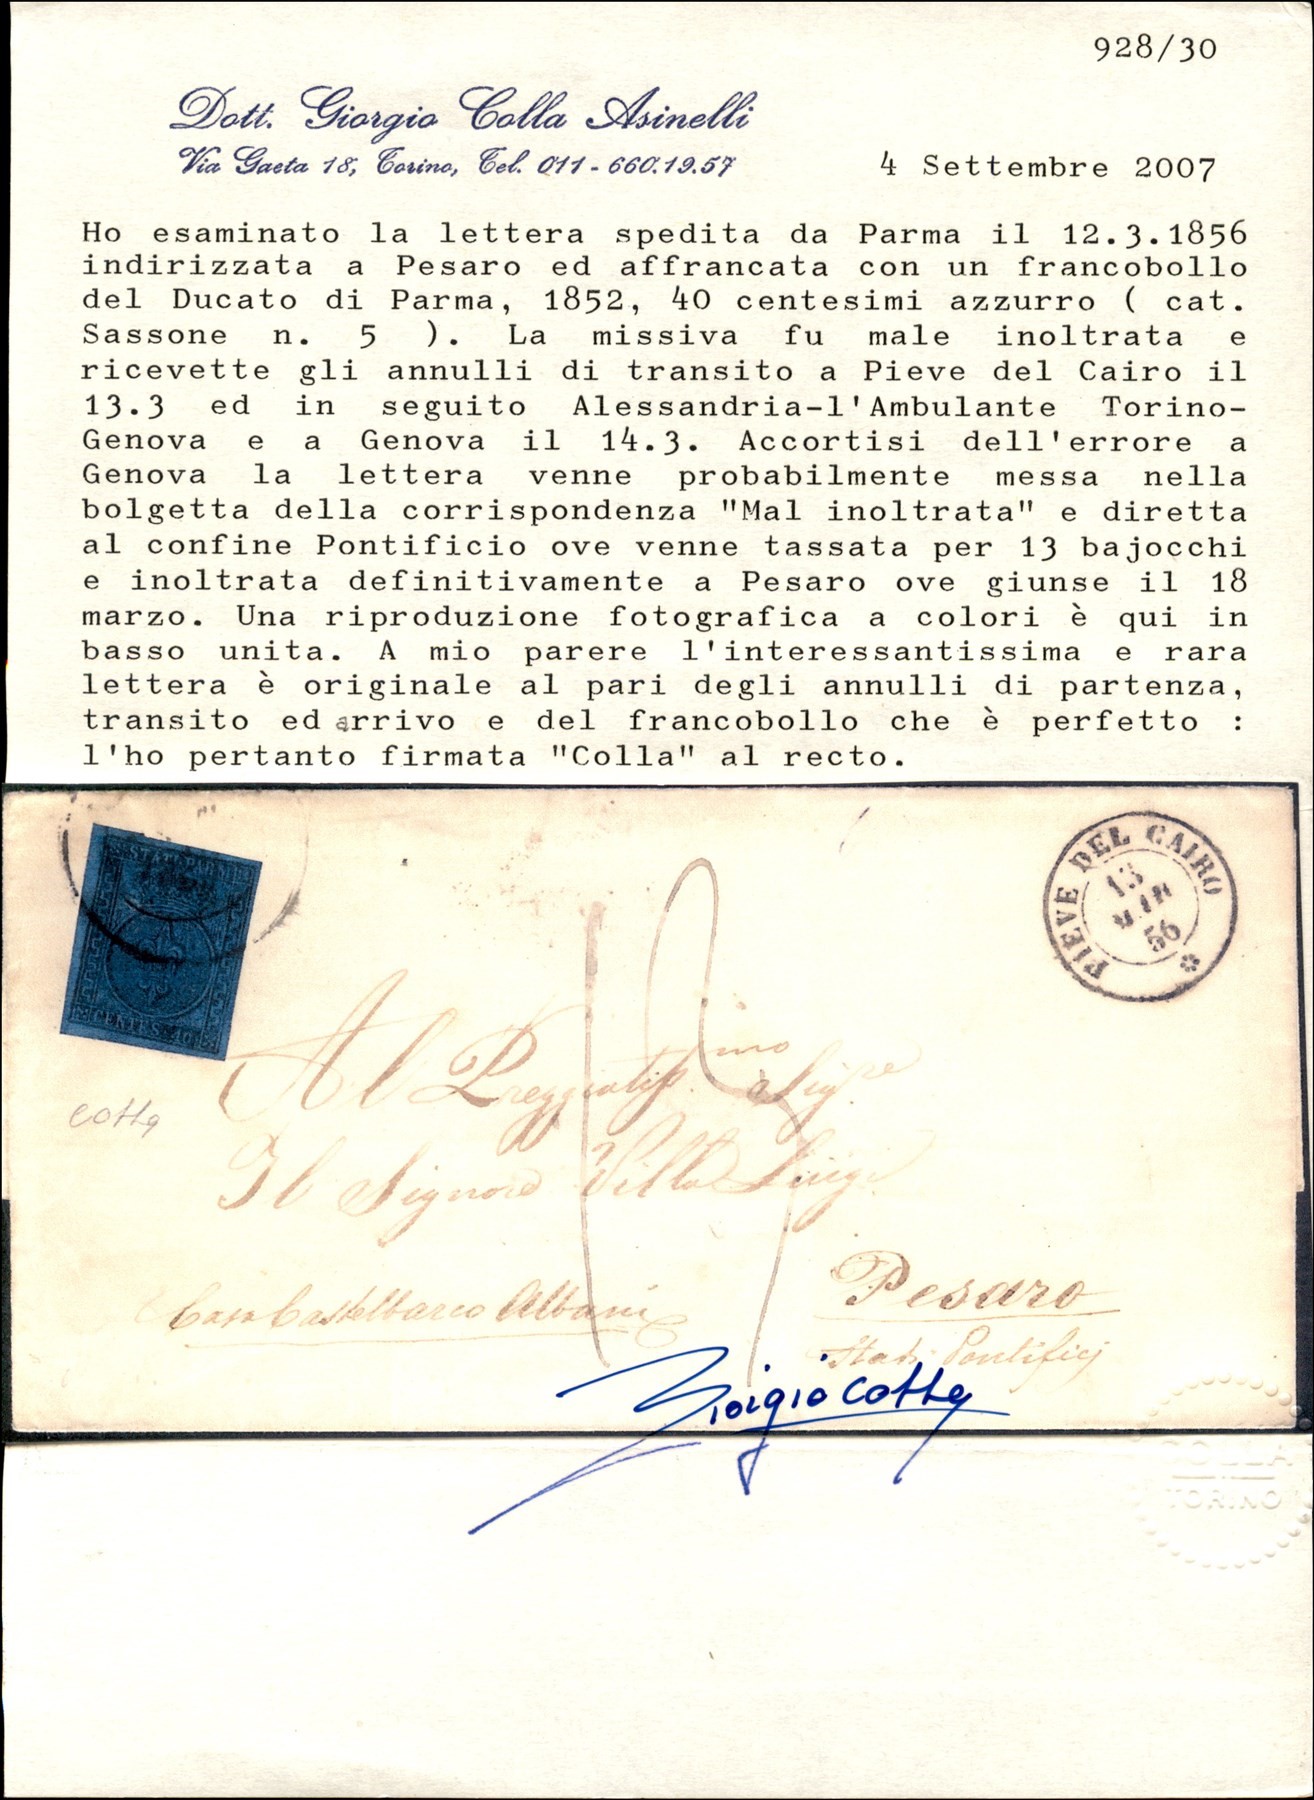 928/30
Dott. Giorgio Colla Asinelli
Via Gaeta 18, Torino, Tel. 011-660.19.57
4 Settembre 2007
Ho esaminato la lettera spedita da Parma il 12.3.1856
indirizzata a Pesaro ed affrancata con un francobollo
del Ducato di Parma, 1852, 40 centesimi azzurro ( cat.
Sassone n. 5 ). La missiva fu male inoltrata e
ricevette gli annulli di transito a Pieve del Cairo il
13.3 ed in seguito Alessandria-l'Ambulante Torino-
Genova e a Genova il 14.3. Accortisi dell'errore a
Genova la lettera venne probabilmente messa nella
bolgetta della corrispondenza "Mal inoltrata" e diretta
al confine Pontificio ove venne tassata per 13 bajocchi
e inoltrata definitivamente a Pesaro ove giunse il 18
marzo. Una riproduzione fotografica a colori è qui in
basso unita. A mio parere l'interessantissima e rara
lettera è originale al pari degli annulli di partenza,
transito ed arrivo e del francobollo che è perfetto :
l'ho pertanto firmata "Colla" al recto.
STATI PARMENSI
CENTES. 40
PIEVE DEL CAIRO
13
MAR
56
Colla
13
Al
Il Signore Villa Luigi
Casa Castelbarco Albani
Pesaro
Stati Pontificj
Giorgio Colla
COLLA
TORINO